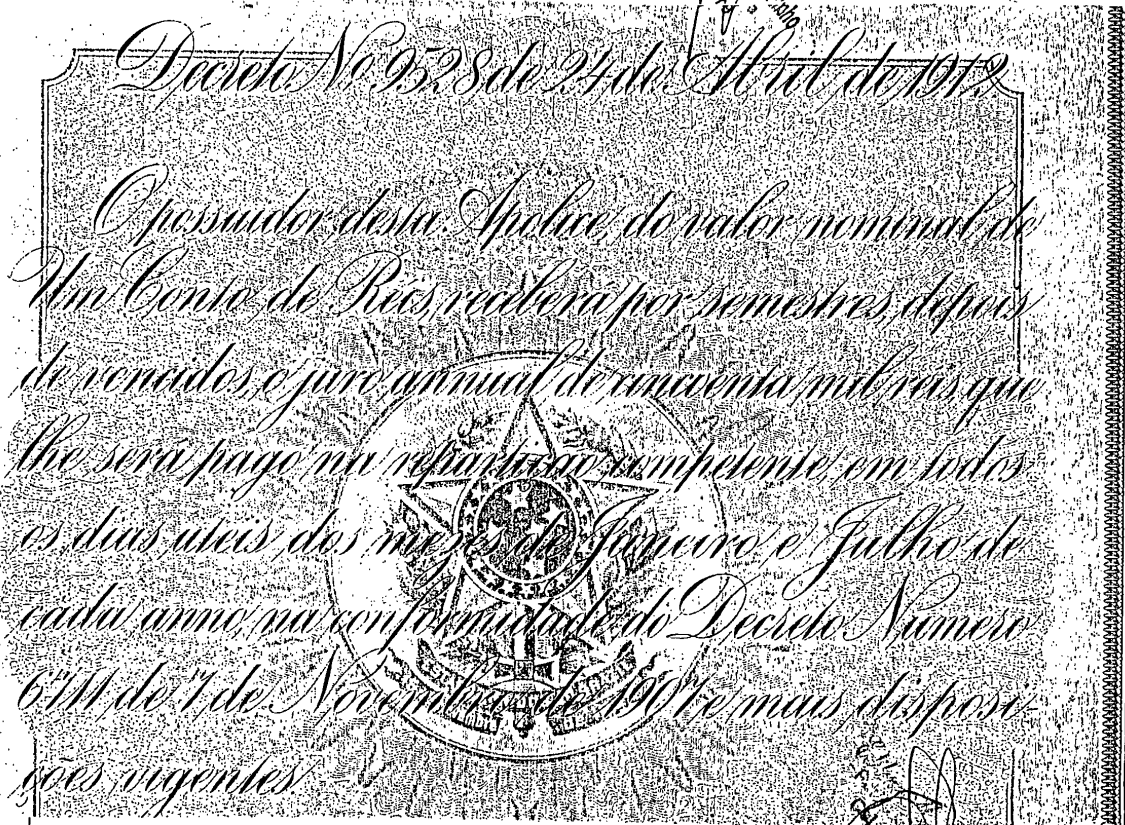 Decreto No 9528 de 24 de Abril de 1912
O possuidor desta Apolice, do valor nominal de
Um Conto de Réis, receberá por semestres, depois
de vencidos, o juro annual de cincoenta mil reis que
lhe será pago na repartição competente, em todos
os dias uteis dos mezes de Janeiro e Julho de
cada anno, na conformidade do Decreto Numero
6711 de 7 de Novembro de 1907, e mais disposi-
ções vigentes